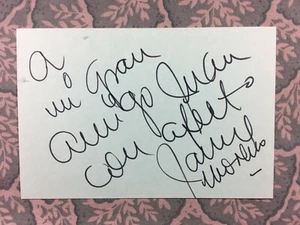 A
mi gran
amigo Juan
con afecto
Jaime
Moreno